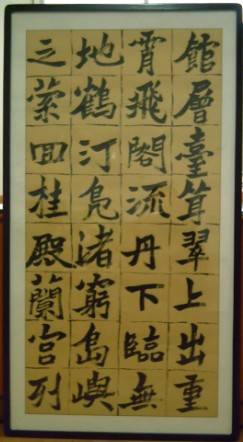 館層臺聳翠上出重
霄飛閣流丹下臨無
地鶴汀凫渚窮島嶼
之縈回桂殿蘭宮列